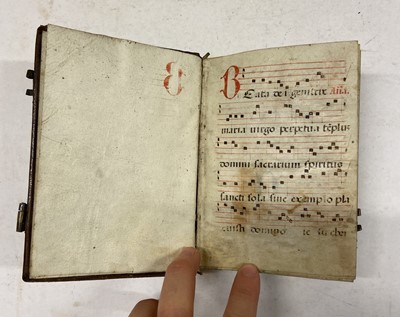 Beata dei genitrix Aña.
maria virgo perpetua tẽplũ
domini sacrarium spiritus
sancti sola sine exemplo pla
cuisti domino